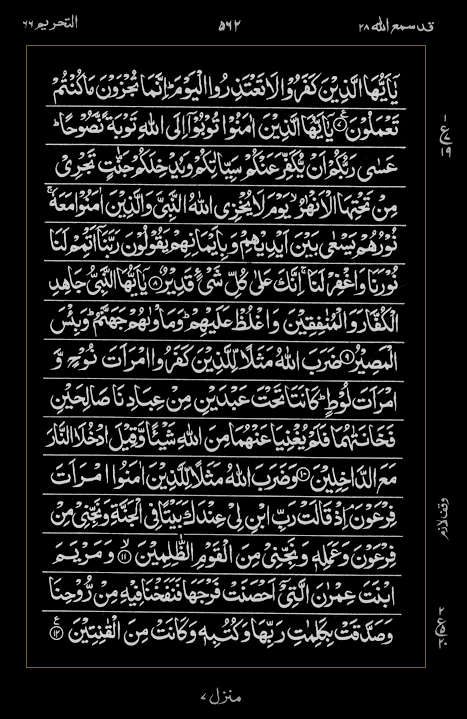 قد سمع الله ٢٨
٥٦٢
التحريم ٦٦
يٰۤاَيُّهَا الَّذِيْنَ كَفَرُوْا لَا تَعْتَذِرُوا الْيَوْمَ ؕ اِنَّمَا تُجْزَوْنَ مَا كُنْتُمْ
تَعْمَلُوْنَ ۧ‏﴿۷﴾ يٰۤاَيُّهَا الَّذِيْنَ اٰمَنُوْا تُوْبُوْۤا اِلَى اللّٰهِ تَوْبَةً نَّصُوْحًا ؕ
عَسٰى رَبُّكُمْ اَنْ يُّكَفِّرَ عَنْكُمْ سَيِّاٰتِكُمْ وَيُدْخِلَكُمْ جَنّٰتٍ تَجْرِىْ
مِنْ تَحْتِهَا الْاَنْهٰرُ ۙ يَوْمَ لَا يُخْزِى اللّٰهُ النَّبِىَّ وَالَّذِيْنَ اٰمَنُوْا مَعَهٗ ۚ
نُوْرُهُمْ يَسْعٰى بَيْنَ اَيْدِيْهِمْ وَبِاَيْمَانِهِمْ يَقُوْلُوْنَ رَبَّنَاۤ اَتْمِمْ لَنَا
نُوْرَنَا وَاغْفِرْ لَنَا ۚ اِنَّكَ عَلٰى كُلِّ شَىْءٍ قَدِيْرٌ ﴿۸﴾ يٰۤاَيُّهَا النَّبِىُّ جَاهِدِ
الْكُفَّارَ وَالْمُنٰفِقِيْنَ وَاغْلُظْ عَلَيْهِمْ ؕ وَمَاْوٰٮهُمْ جَهَنَّمُ ؕ وَبِئْسَ
الْمَصِيْرُ ﴿۹﴾ ضَرَبَ اللّٰهُ مَثَلًا لِّلَّذِيْنَ كَفَرُوا امْرَاَتَ نُوْحٍ وَّ
امْرَاَتَ لُوْطٍ ؕ كَانَتَا تَحْتَ عَبْدَيْنِ مِنْ عِبَادِنَا صَالِحَيْنِ
فَخَانَتٰهُمَا فَلَمْ يُغْنِيَا عَنْهُمَا مِنَ اللّٰهِ شَيْــًٔا وَّقِيْلَ ادْخُلَا النَّارَ
مَعَ الدَّاخِلِيْنَ ﴿۱۰﴾ وَضَرَبَ اللّٰهُ مَثَلًا لِّلَّذِيْنَ اٰمَنُوا امْرَاَتَ
فِرْعَوْنَ ۘ اِذْ قَالَتْ رَبِّ ابْنِ لِىْ عِنْدَكَ بَيْتًا فِى الْجَنَّةِ وَنَجِّنِىْ مِنْ
فِرْعَوْنَ وَعَمَلِهٖ وَنَجِّنِىْ مِنَ الْقَوْمِ الظّٰلِمِيْنَ ۙ‏﴿۱۱﴾ وَمَرْيَمَ
ابْنَتَ عِمْرٰنَ الَّتِىْۤ اَحْصَنَتْ فَرْجَهَا فَنَفَخْنَا فِيْهِ مِنْ رُّوْحِنَا
وَصَدَّقَتْ بِكَلِمٰتِ رَبِّهَا وَكُتُبِهٖ وَكَانَتْ مِنَ الْقٰنِتِيْنَ ۧ‏﴿۱۲﴾
١
ع
١٩
وقف لازم
٢
ع
٢٠
منزل ٧